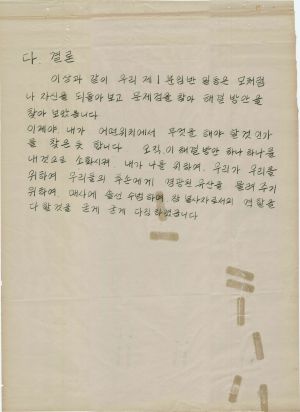 다. 결론
이상과 같이 우리 제 1 분임반 일동은 모처럼
나 자신을 되돌아보고 문제점을 찾아 해결 방안을
찾아 보았읍니다
이제야. 내가 어떤위치에서 무엇을 해야 할 것인가
를 찾은듯 합니다 오직, 이 해결방안 하나 하나를
내것으로 소화시켜. 내가 나를 위하여, 우리가 우리를
위하여 우리들의 후손에게 영광된 유산을 물려 주기
위하여, 매사에 솔선 수범하여 참 봉사자로서의 역할을
다할것을 굳게 굳게 다짐하였읍니다